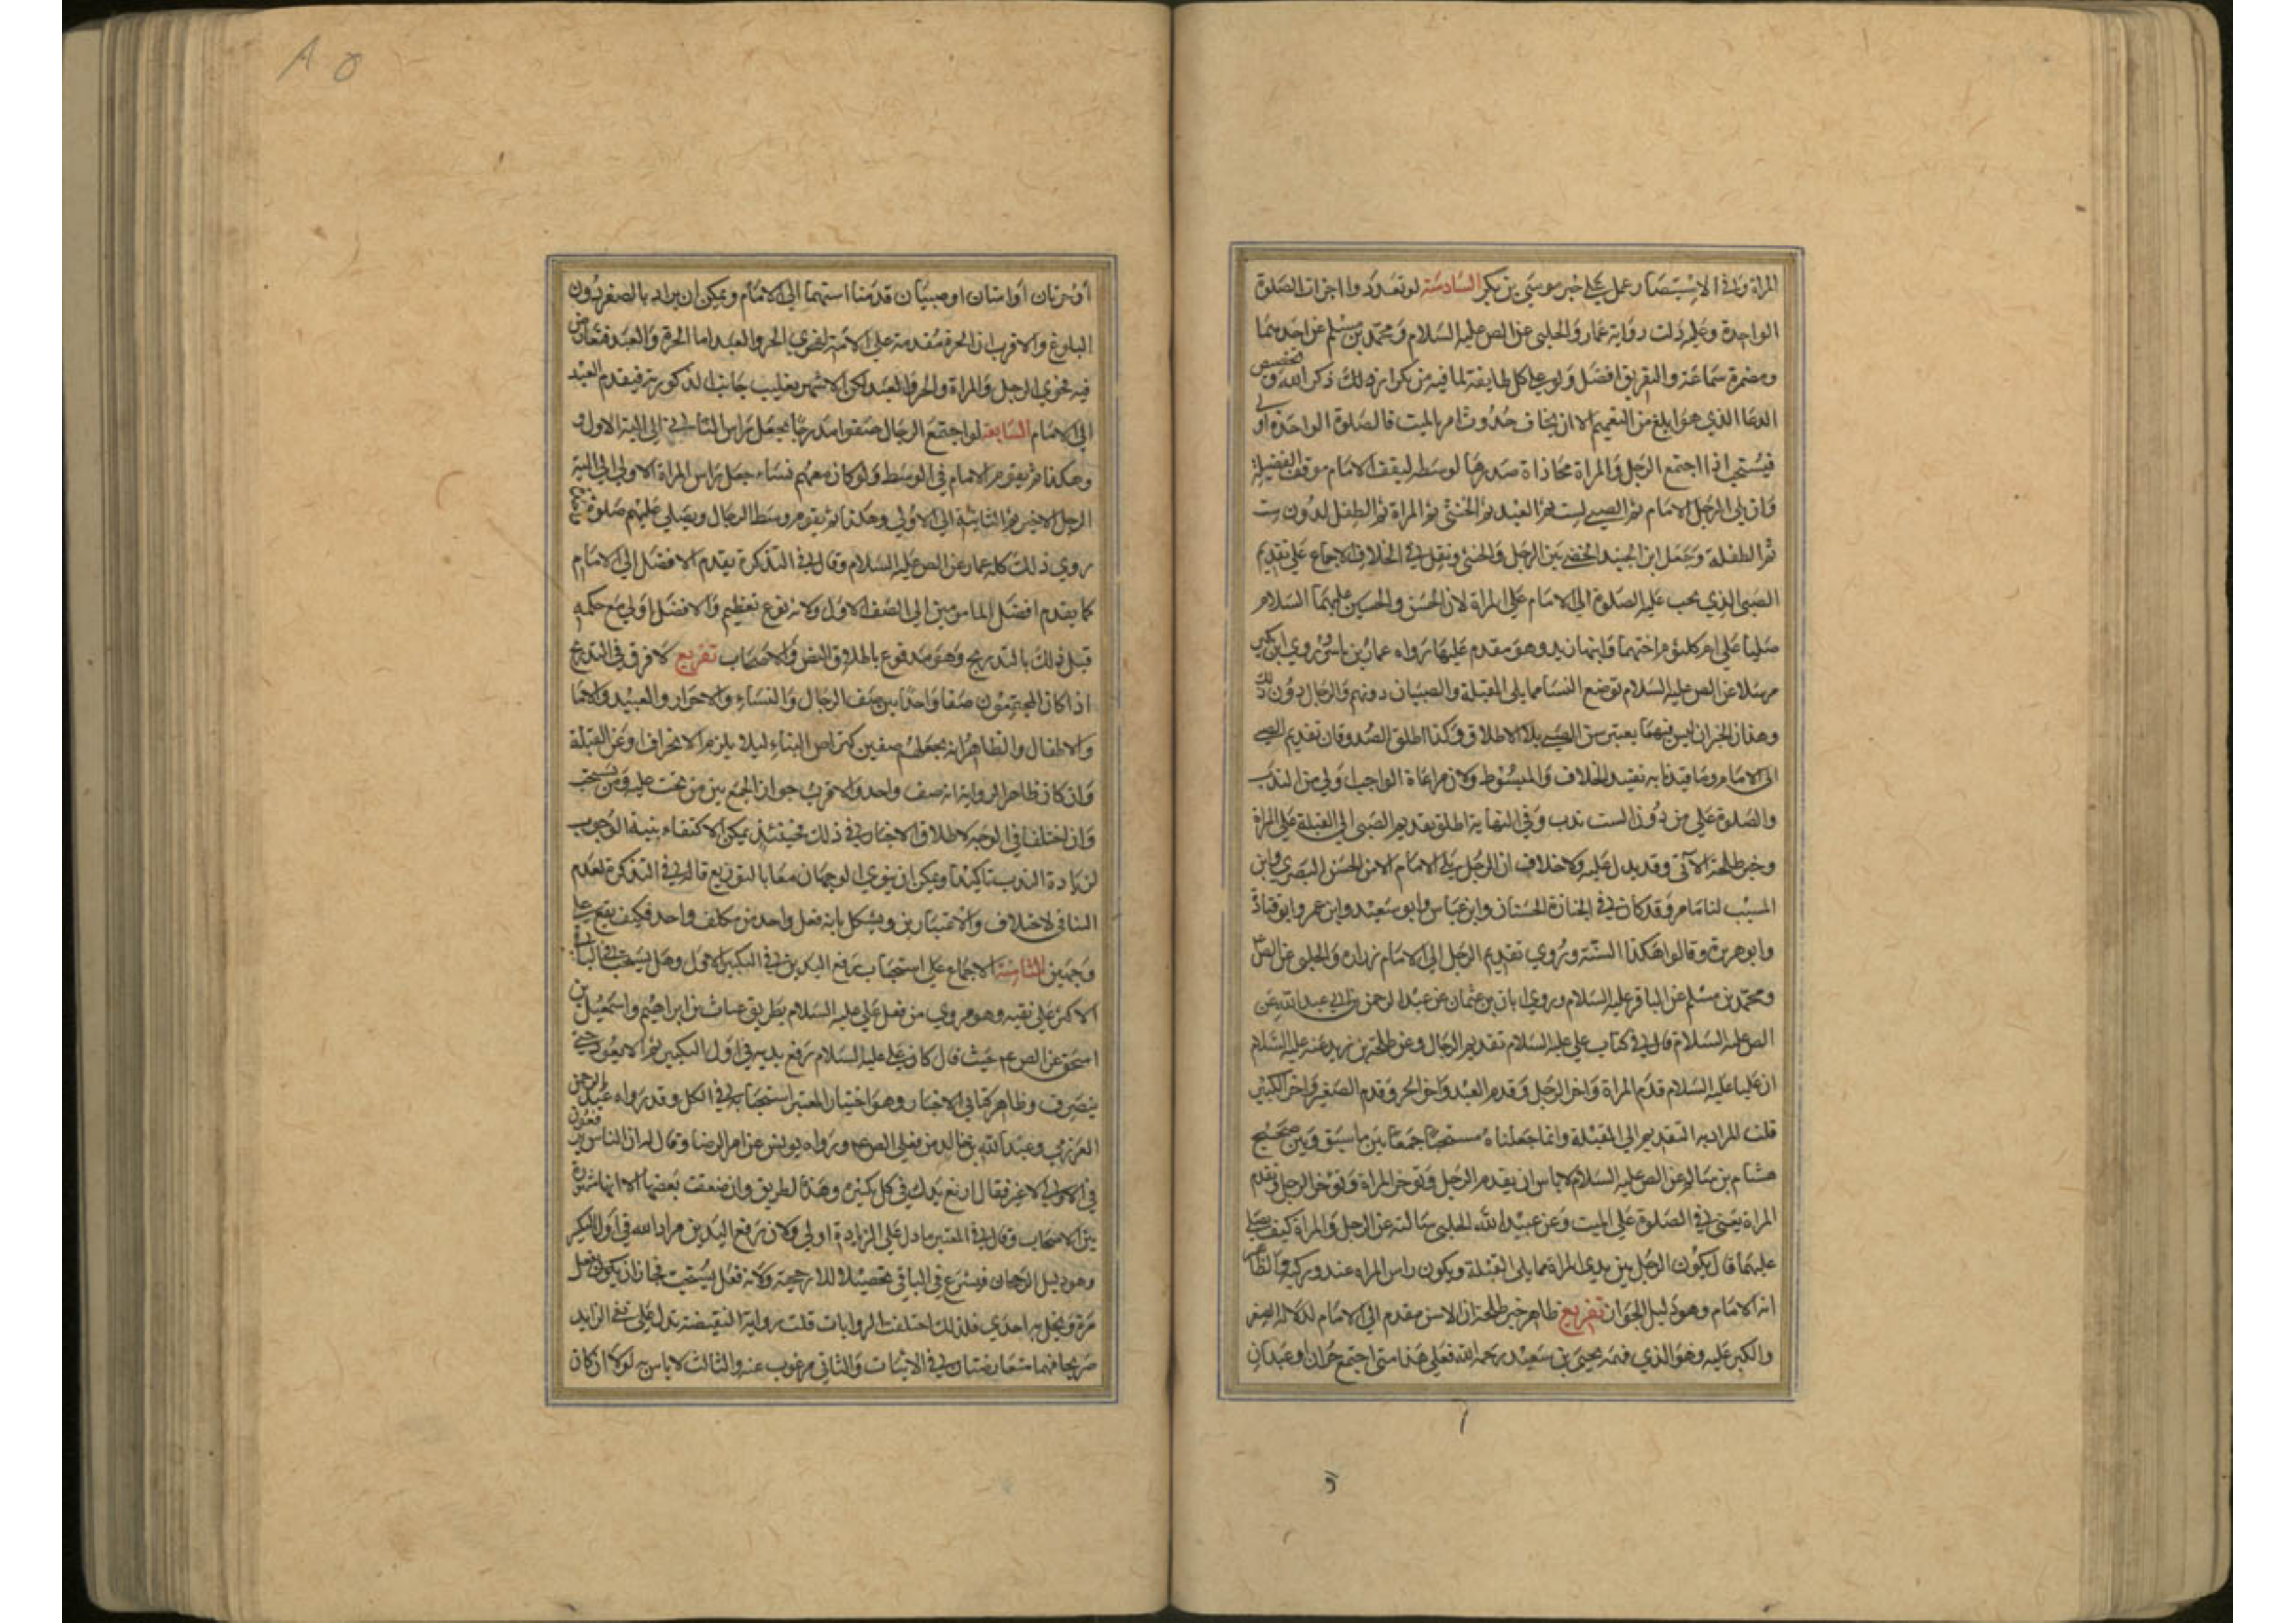 المراة وفي الاستبصار عمل على خبر موسى بن بكر السادسة لو تعددوا اجزات الصلوة
الواحدة وعليه دلت رواية عمار والحلبي عن الص عليه السلام ومحمد بن مسلم عن احدهما
ومضمرة سماعة والتفريق افضل ولو على كل طايفة لما فيه من تكرار ذلك ذكر الله وتخصيص
الدعا الذي هو ابلغ من التعميم الا ان يخاف حدوث امر بالميت فالصلوة الواحدة اولى
فيستحب اذا اجتمع الرجل والمراة محاذاة صدرها لوسطه ليقف الامام موقف الفضيلة
وان يلي الرجل الامام ثم الصبي لست ثم العبد ثم الخنثى ثم المراة ثم الطفل لدون ست
ثم الطفلة وجعل ابن الجنيد الخصي بين الرجل والخنثى ونقل في الخلاف الاجماع على تقديم
الصبي الذي يجب عليه الصلوة الى الامام على المراة لان الحسن والحسين عليهما السلام
صليا على ام كلثوم اختهما وابنها زيد وهو مقدم عليها رواه عمار بن ياسر وروى ابن بكير
مرسلا عن الص عليه السلام توضع النسا مما يلي القبلة والصبيان دونهم والرجال دون ذلك
وهذان الخبران ليس فيهما تعيين سن الصبي بل الاطلاق وكذا اطلق الصدوقان تقديم الصبي
الى الامام وما قيدنا به تقييد الخلاف والمبسوط ولان مراعاة الواجب اولى من الندب
والصلوة على من دون الست ندب وفي النهاية اطلق تقديم الصبي الى القبلة على المراة
وخبر طلحة الآتي وقد يدل عليه ولا خلاف ان الرجل يلي الامام الا من الحسن البصري وابن
المسيب لنا ما مر وقد كان في الجنازة الحسنان وابن عباس وابو سعيد وابن عمر وابو قتادة
وابو هريرة وقالوا هكذا السنة وروى تقديم الرجل الى الامام زرارة والحلبي عن الص
ومحمد بن مسلم عن الباقر عليه السلام وروى ابان بن عثمان عن عبد الرحمن بن ابي عبد الله عن
الص عليه السلام قال في كتاب علي عليه السلام تقديم الرجال وعن طلحة بن زيد عنه عليه السلام
ان عليا عليه السلام قدم المراة واخر الرجل وقدم العبد واخر الحر وقدم الصغير واخر الكبير
قلت المراد به التقديم الى القبلة وانما جعلناه مستحبا جمعا بين ما سبق وبين صحيح
هشام بن سالم عن الص عليه السلام لا باس ان يقدم الرجل وتوخر المراة وتوخر الرجل وتقدم
المراة يعني في الصلوة على الميت وعن عبيد الله الحلبي سالته عن الرجل والمراة كيف يصلى
عليهما قال يكون الرجل بين يدي المراة مما يلي القبلة ويكون راس المراة عند وركيه والظاهر
انه الامام وهو دليل الجواز تفريع ظاهر خبر طلحة ان الاسن مقدم الى الامام لدلالة الصغر
والكبر عليه وهو الذي فهمه يحيى بن سعيد رحمه الله فعلى هذا متى اجتمع حران او عبدان
او حرتان او امتان او صبيان قدمنا اسنهما الى الامام ويمكن ان يراد بالصغر دون
البلوغ والاقرب ان الحرة مقدمة على الامة لفحوى الحر والعبد اما الحرة والعبد فتعارض
فيه فحوى الرجل والمراة والحر والعبد لكن الاشهر تغليب جانب الذكورية فيقدم العبد
الى الامام السابعة لو اجتمع الرجال صفوا مدرجا يجعل راس الثاني الى الية الاول و
هكذا ثم يقوم الامام في الوسط ولو كان معهم نساء جعل راس المراة الاولى الى الية
الرجل الاخير ثم الثانية الى الاولى وهكذا ثم يقوم وسط الرجال ويصلي عليهم صلوة
روى ذلك كله عمار عن الص عليه السلام وقال في التذكرة يقدم الافضل الى الامام
كما يقدم افضل المامومين الى الصف الاول ولانه نوع تعظيم والافضل اولى مع حكمه
قبل ذلك بالتدريج وهو مدفوع باطلاق النص والاصحاب تفريع لا فرق في التدريج
اذا كان المجتمعون صفا واحدا بين صف الرجال والنساء والاحرار والعبيد والاما
والاطفال والظاهر انه يجعلهم صفين كتراص البناء ليلا يلزم الانحراف عن القبلة
وان كان ظاهر الرواية انه صف واحد والاقرب جواز الجمع بين من تجب عليه ومن يستحب
وان اختلفا في الوجه لاطلاق الاخبار في ذلك فحينئذ يمكن الاكتفاء بنية الوجوب
لزيادة الندب تاكيدا ويمكن ان ينوي الوجهان معا بالتوزيع قال في التذكرة لعدم
التنافي لاختلاف والاعتبارين ويشكل بانه فعل واحد من مكلف واحد فكيف يقع على
وجهين الثامنة الاجماع على استحباب رفع اليدين في التكبير الاول وهل يستحب في الباقي
الاكثر على نفيه وهو مروي من فعل علي عليه السلام بطريق غياث بن ابراهيم واسمعيل بن
اسحق عن الص عم حيث قال كان علي عليه السلام يرفع يديه في اول التكبير ثم لا يعود حتى
ينصرف وظاهر كتابي الاخبار وهو اختيار المعتبر استحبابه في الكل وقد رواه عبد الرحمن
العرزمي وعبد الله بن خالد من فعل الص عم ورواه يونس عن امر الرضا وقال له ان الناس يرفعون
في الاولى لا غير فقال ارفع يدك في كل تكبيرة وهذا الطريق وان ضعفت بعضها الا انها مشهورة
بين الاصحاب وقال في المعتبر ما دل على الزيادة اولى ولان رفع اليدين مراد الله في اول التكبير
وهو دليل الرجحان فيشرع في الباقي تحصيلا للارجحية ولانه فعل يستحب فجاز ان يكون يفعل
مرة ويخل به اخرى فلذلك اختلفت الروايات قلت رواية النقيضة تدل على نفي الزايد
صريحا فهما متعارضتان في الاثبات والثاني مرغوب عنه والثالث لا باس به لولا ان كان